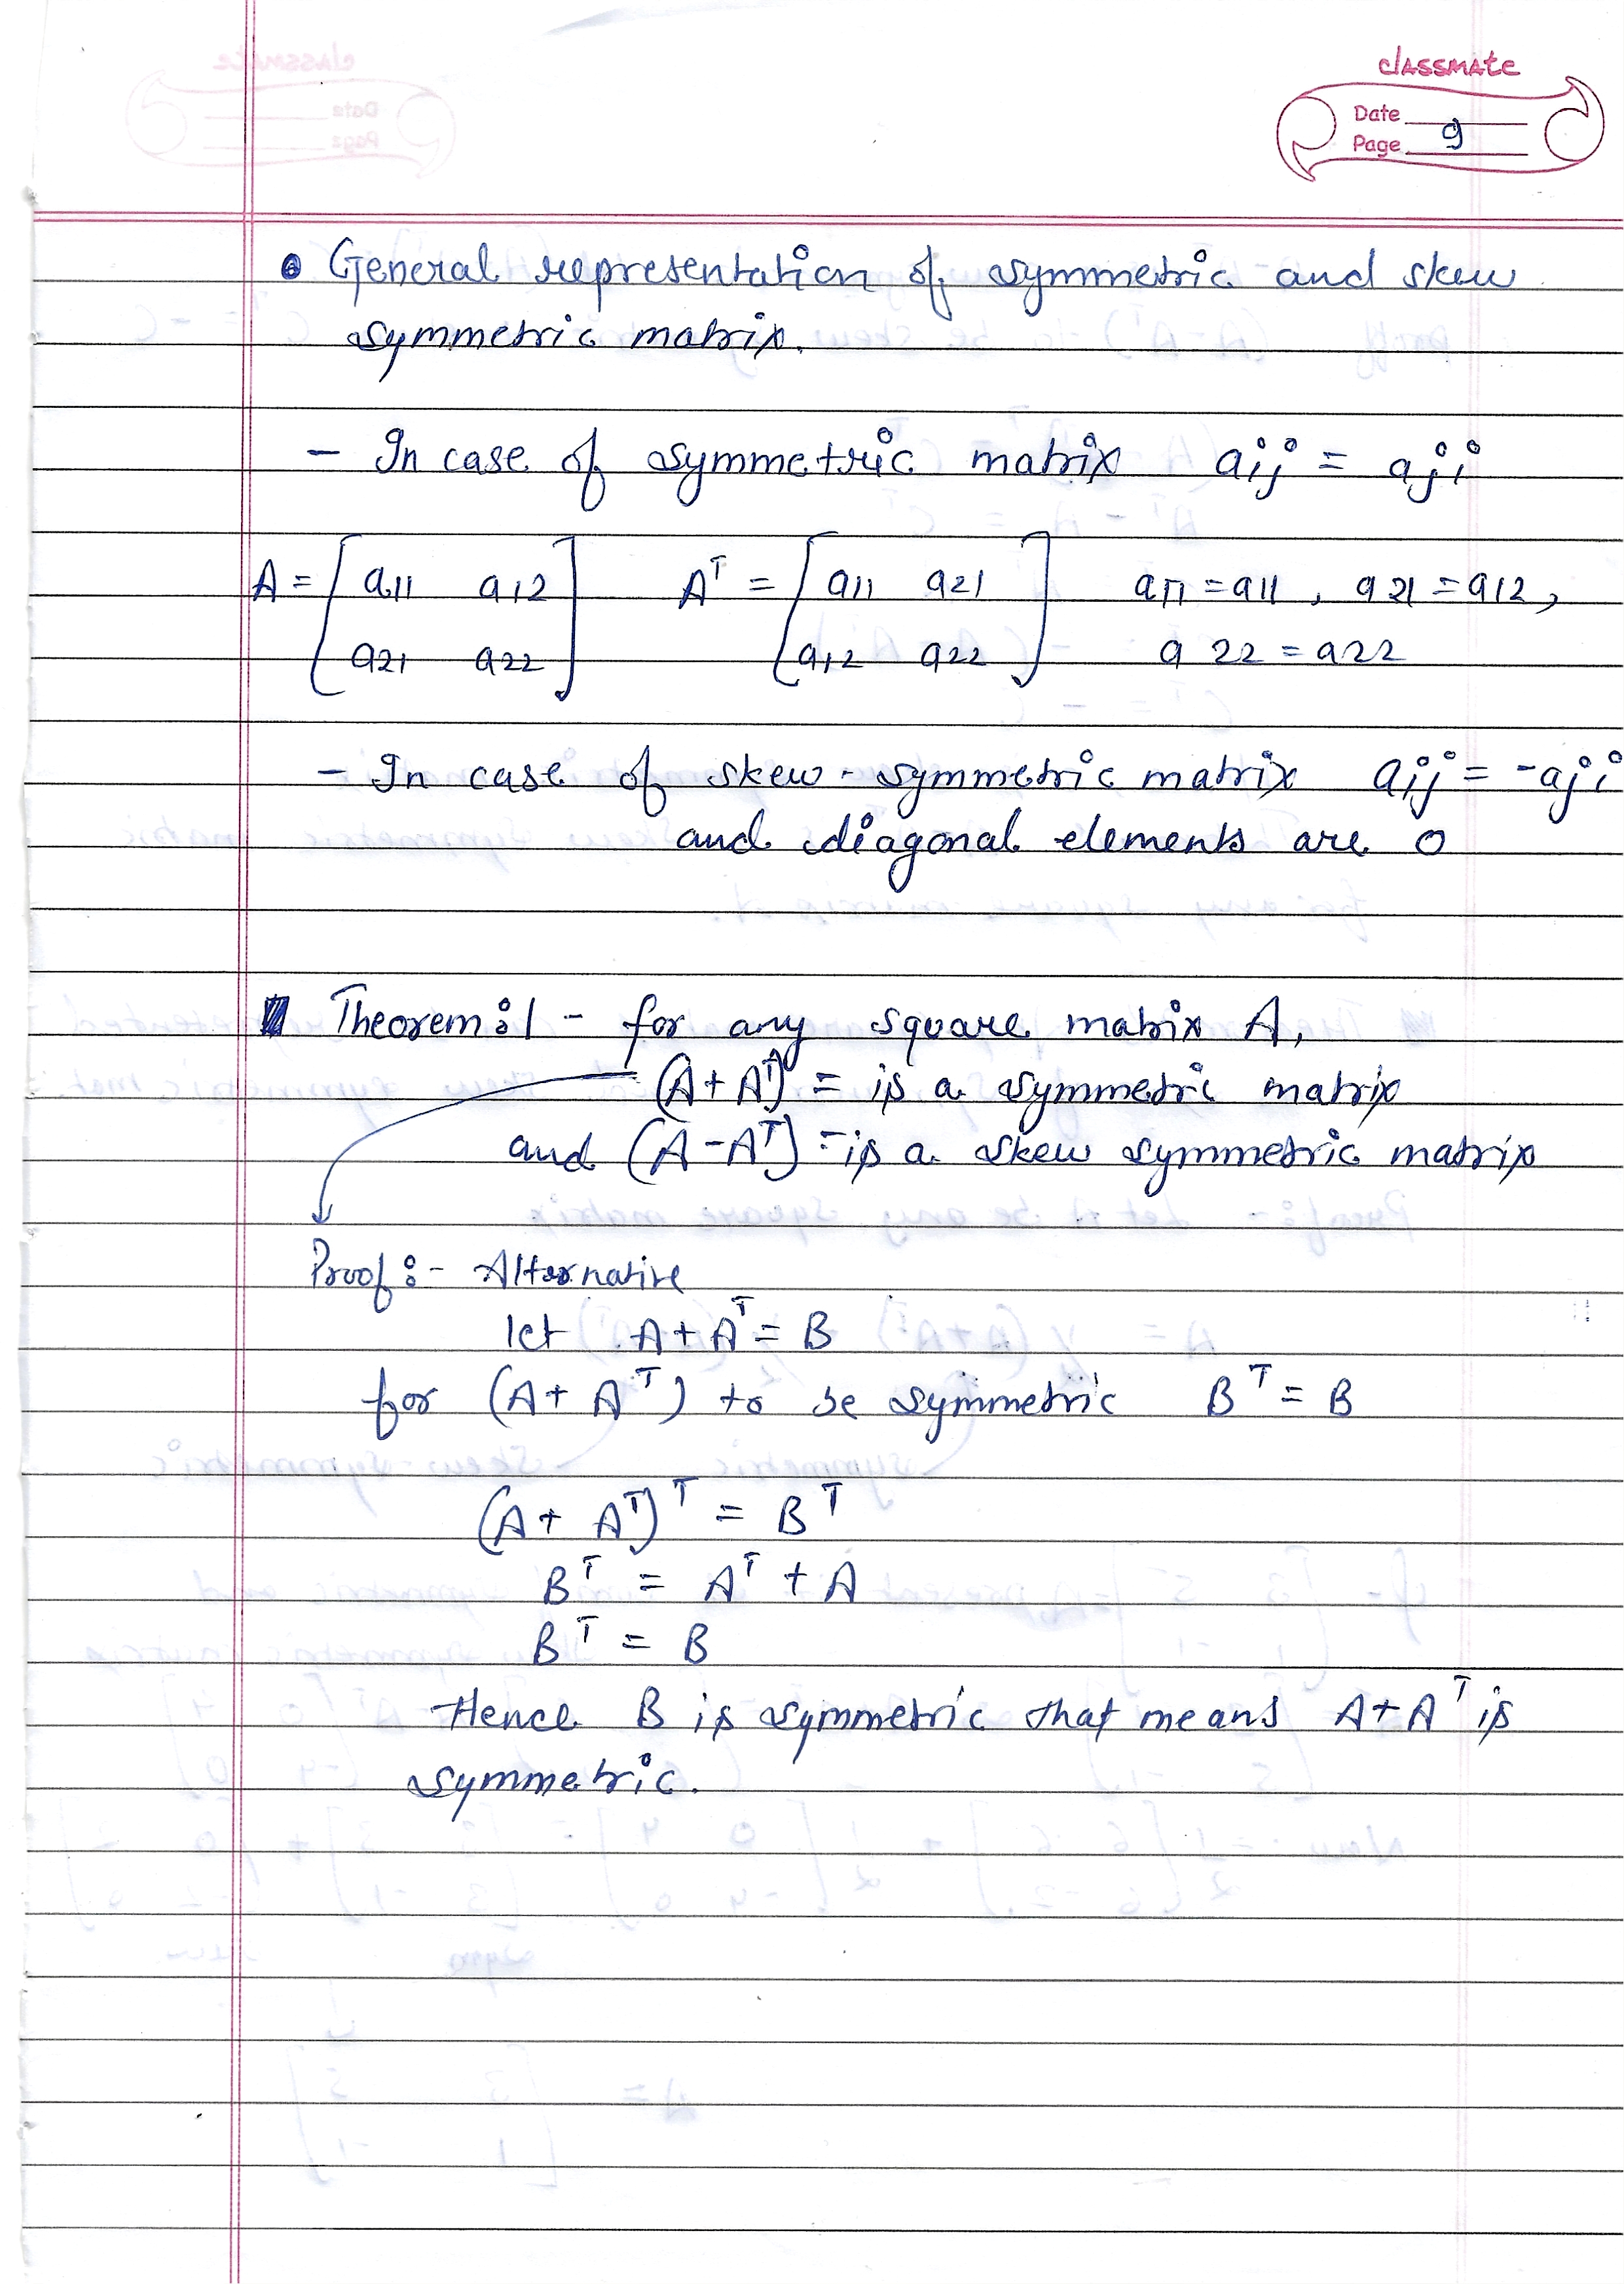 classmate
Date
Page 9
• General representation of symmetric and skew
symmetric matrix.
- In case of symmetric matrix aij = aji
A = [ a11 a12 Aᵀ = [ a11 a21 ] a11 = a11, a21 = a12,
a21 a22 ] a12 a22 a 22 = a22
- In case of skew - symmetric matrix aij = -aji
and diagonal elements are 0
Theorem:1 - for any square matrix A,
(A + Aᵀ) = is a symmetric matrix
and (A - Aᵀ) = is a skew symmetric matrix
Proof :- Alternative
let A + Aᵀ = B
for (A + Aᵀ) to be symmetric Bᵀ = B
(A + Aᵀ)ᵀ = Bᵀ
Bᵀ = Aᵀ + A
Bᵀ = B
Hence B is symmetric that means A + Aᵀ is
symmetric.